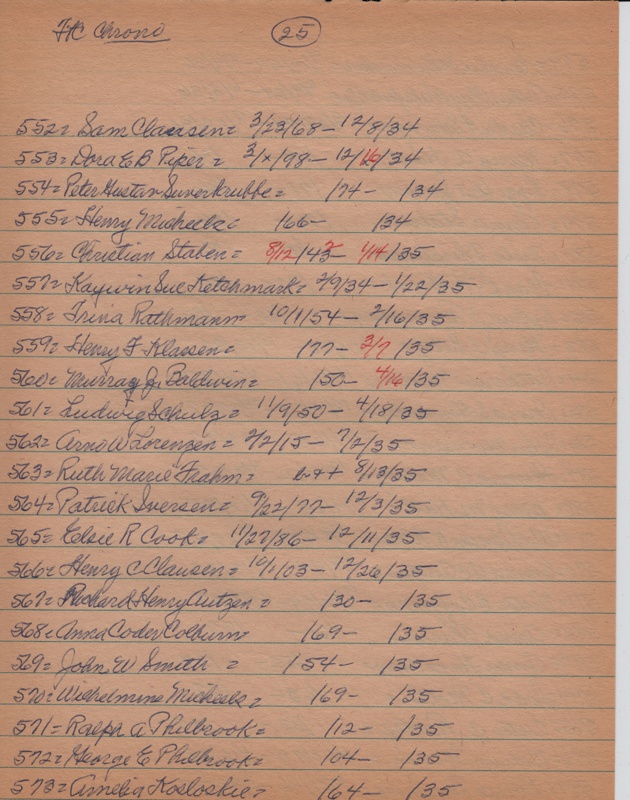 FHC Chrono 25
552= Sam Claussen= 3/23/68- 12/8/34
553= Dora E B Piper= 3/x/98- 12/16/34
554= Peter Gustav Suverkrubbe= /74- /34
555= Henry Micheels= /66- /34
556= Christian Staben= 8/12/43- 1/14/35
557= Kaywin Sue Ketchmark= 2/9/34- 1/22/35
558= Trina Rathmann= 10/1/54- 2/16/35
559= Henry F Klassen= /77- 3/7/35
560= Murray J. Baldwin= /50- 4/16/35
561= Ludwig Schulz= 11/9/50- 4/18/35
562= Arno W Lorenzen= 2/2/15- 7/2/35
563= Ruth Marie Frahm= 8/13/35
564= Patrick Iversen= 9/22/77- 12/3/35
565= Elsie R Cook= 11/27/86- 12/11/35
566= Henry C Clausen= 10/1/03- 12/26/35
567= Richard Henry Autzen= /30- /35
568= Anna Coder Colburn= /69- /35
569= John W Smith = /54- /35
570= Wilhelmine Micheels= /69- /35
571= Ralph A Philbrook= /12- /35
572= George E Philbrook= /04- /35
573= Amelia Kosloskie= /64- /35